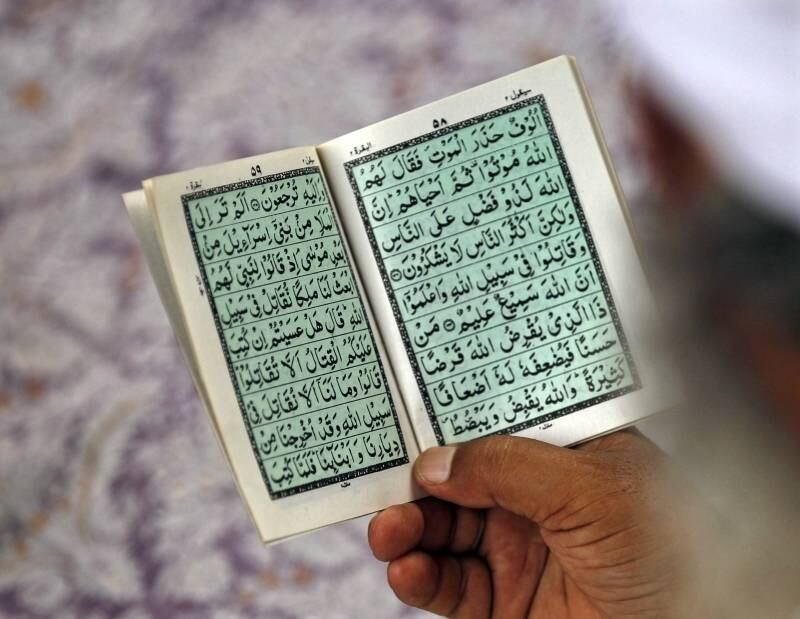 سیقول ۲
۵۸
البقرة ۲
اُلُوْفٌ حَذَرَ الْمَوْتِ فَقَالَ لَهُمُ
اللّٰهُ مُوْتُوْا ثُمَّ اَحْيَاهُمْ اِنَّ
اللّٰهَ لَذُوْ فَضْلٍ عَلَى النَّاسِ
وَلٰكِنَّ اَكْثَرَ النَّاسِ لَا يَشْكُرُوْنَ
وَقَاتِلُوْا فِیْ سَبِيْلِ اللّٰهِ وَاعْلَمُوْۤا
اَنَّ اللّٰهَ سَمِيْعٌ عَلِيْمٌ مَنْ
ذَا الَّذِیْ يُقْرِضُ اللّٰهَ قَرْضًا
حَسَنًا فَيُضٰعِفَهٗ لَهٗۤ اَضْعَافًا
كَثِيْرَةً وَاللّٰهُ يَقْبِضُ وَيَبْصُۜطُ
۵۹
البقرة ۲
اِلَيْهِ تُرْجَعُوْنَ اَلَمْ تَرَ اِلَى
الْمَلَاِ مِنْۢ بَنِیْۤ اِسْرَآءِيْلَ مِنْۢ
بَعْدِ مُوْسٰى اِذْ قَالُوْا لِنَبِیٍّ لَّهُمُ
ابْعَثْ لَنَا مَلِكًا نُّقَاتِلْ فِیْ سَبِيْلِ
اللّٰهِ قَالَ هَلْ عَسَيْتُمْ اِنْ كُتِبَ
عَلَيْكُمُ الْقِتَالُ اَلَّا تُقَاتِلُوْا
قَالُوْا وَمَا لَنَاۤ اَلَّا نُقَاتِلَ فِیْ
سَبِيْلِ اللّٰهِ وَقَدْ اُخْرِجْنَا مِنْ
دِيَارِنَا وَاَبْنَآئِنَا فَلَمَّا كُتِبَ